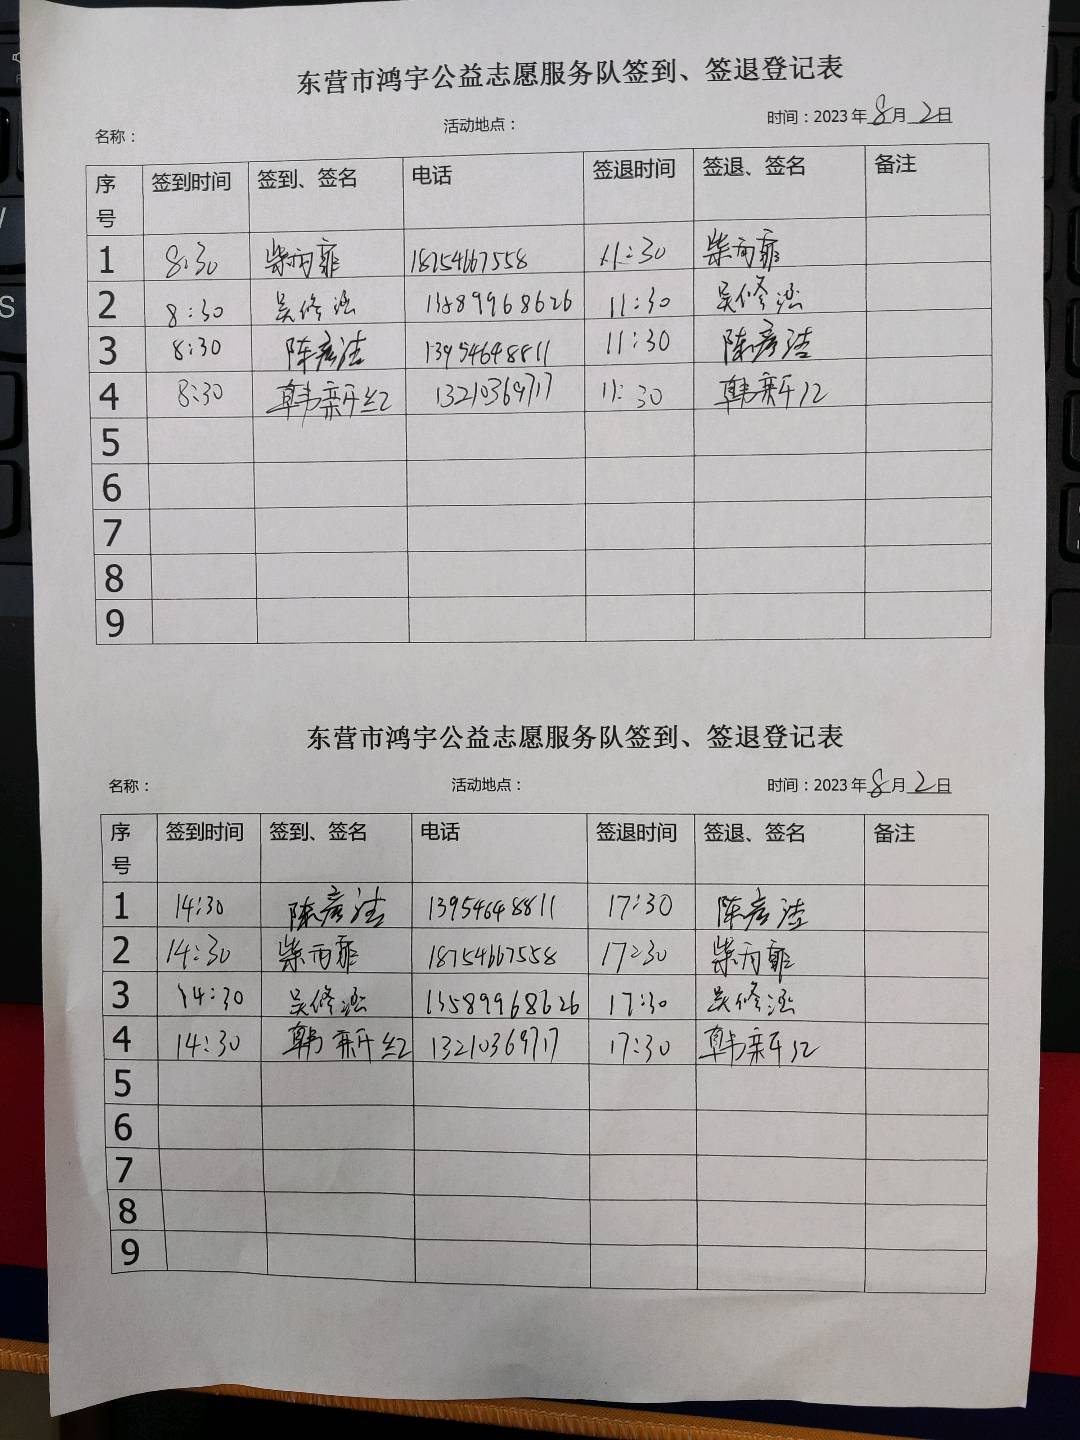 东营市鸿宇公益志愿服务队签到、签退登记表
名称： 活动地点： 时间：2023年8月2日
序号 签到时间 签到、签名 电话 签退时间 签退、签名 备注
1 8:30 柴雨霏 18754667558 11:30 柴雨霏
2 8:30 吴修涵 13589968626 11:30 吴修涵
3 8:30 陈彦洁 13954648811 11:30 陈彦洁
4 8:30 韩新红 13210369717 11:30 韩新红
5
6
7
8
9
东营市鸿宇公益志愿服务队签到、签退登记表
名称： 活动地点： 时间：2023年8月2日
序号 签到时间 签到、签名 电话 签退时间 签退、签名 备注
1 14:30 陈彦洁 13954648811 17:30 陈彦洁
2 14:30 柴雨霏 18754667558 17:30 柴雨霏
3 14:30 吴修涵 13589968626 17:30 吴修涵
4 14:30 韩新红 13210369717 17:30 韩新红
5
6
7
8
9